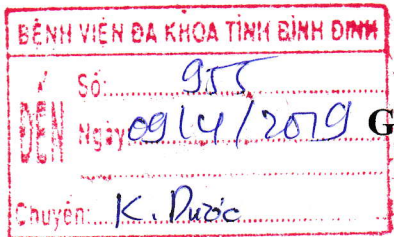 BỆNH VIỆN ĐA KHOA TỈNH BÌNH ĐỊNH
ĐẾN
Số: 955
Ngày: 09/4/2019
G
Chuyển: K. Dược